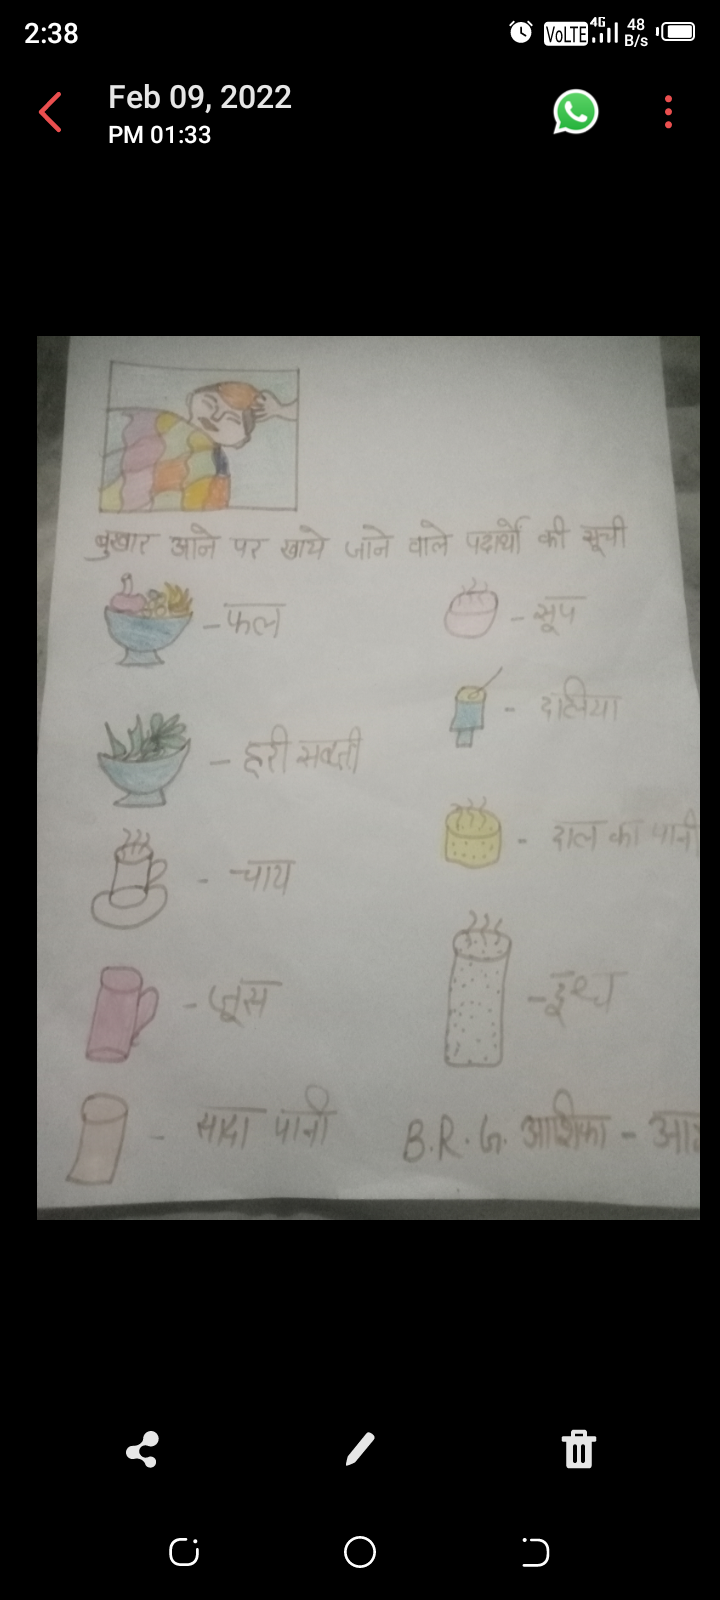 2:38
VoLTE 4G 48 B/s
Feb 09, 2022
PM 01:33
बुखार आने पर खाये जाने वाले पदार्थो की सूची
-फल
-सूप
- दलिया
- हरी सब्जी
- दाल का पानी
- चाय
-जूस
-दूध
- सादा पानी
B.R.G. आशिका -